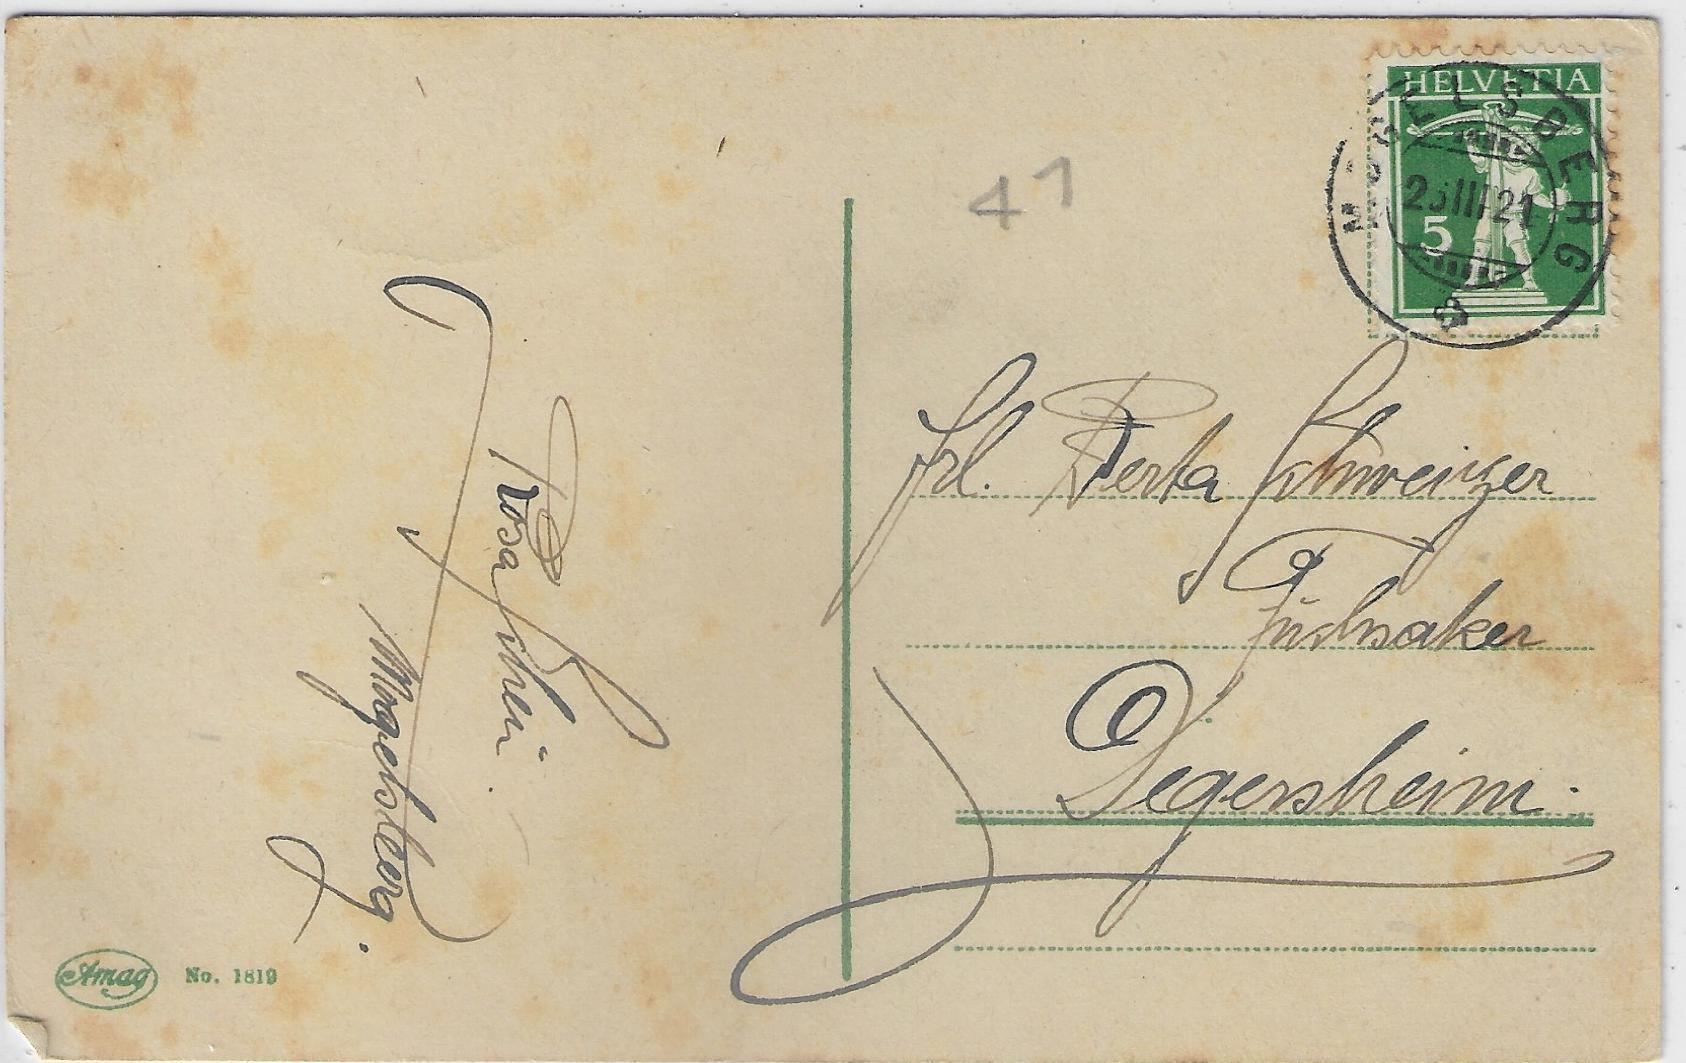 Rosa Schei
Mogelsberg.
Amag No. 1819
41
HELVETIA
5
MOGELSBERG
III 21
Frl. Berta Schweizer
Fuchsaker
Degersheim.